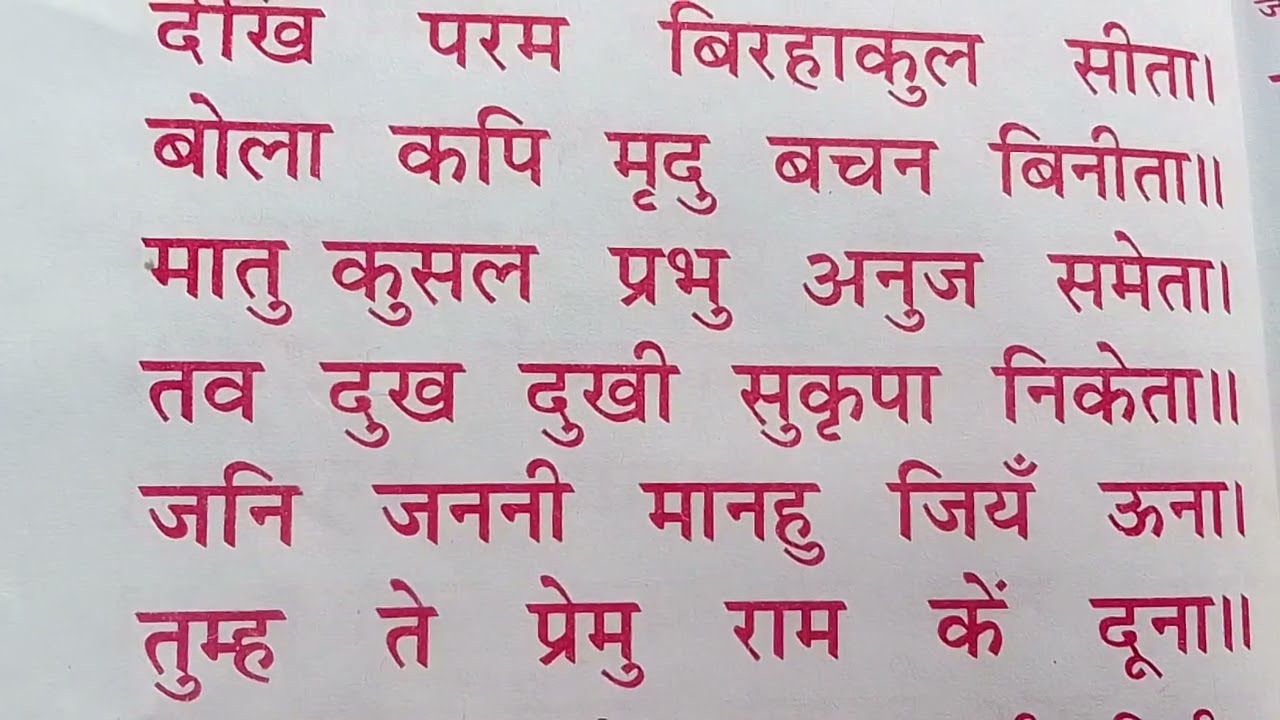 देखि परम बिरहाकुल सीता।
बोला कपि मृदु बचन बिनीता॥
मातु कुसल प्रभु अनुज समेता।
तव दुख दुखी सुकृपा निकेता॥
जनि जननी मानहु जियँ ऊना।
तुम्ह ते प्रेमु राम कें दूना॥